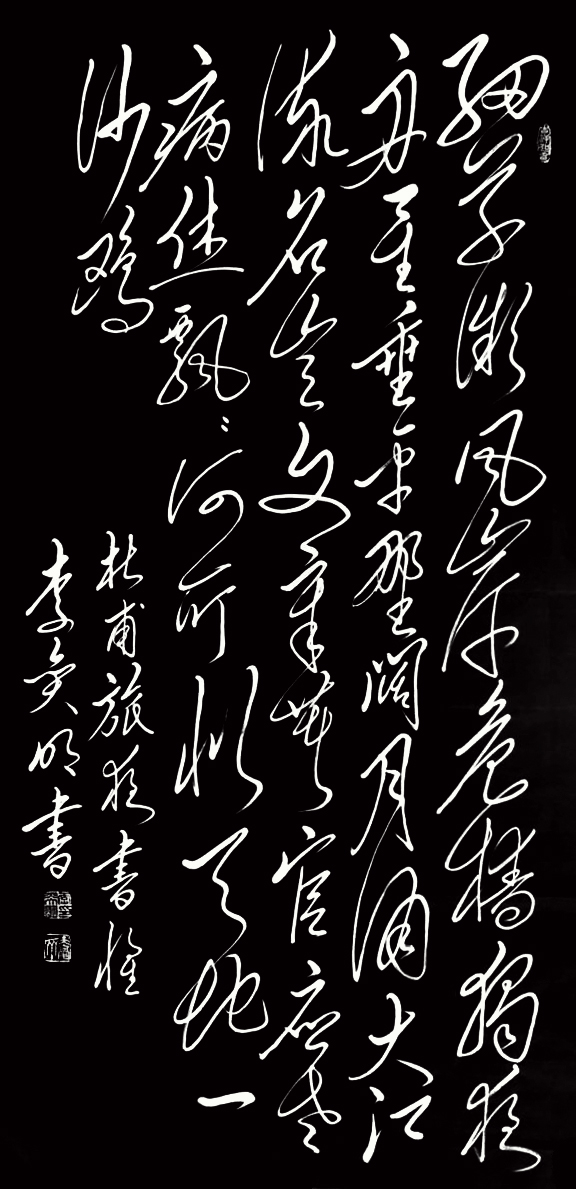 細草微風岸危檣獨夜
舟星垂平野闊月涌大江
流名豈文章著官應老
病休飄〻何所似天地一
沙鷗
杜甫旅夜書懷
李明書